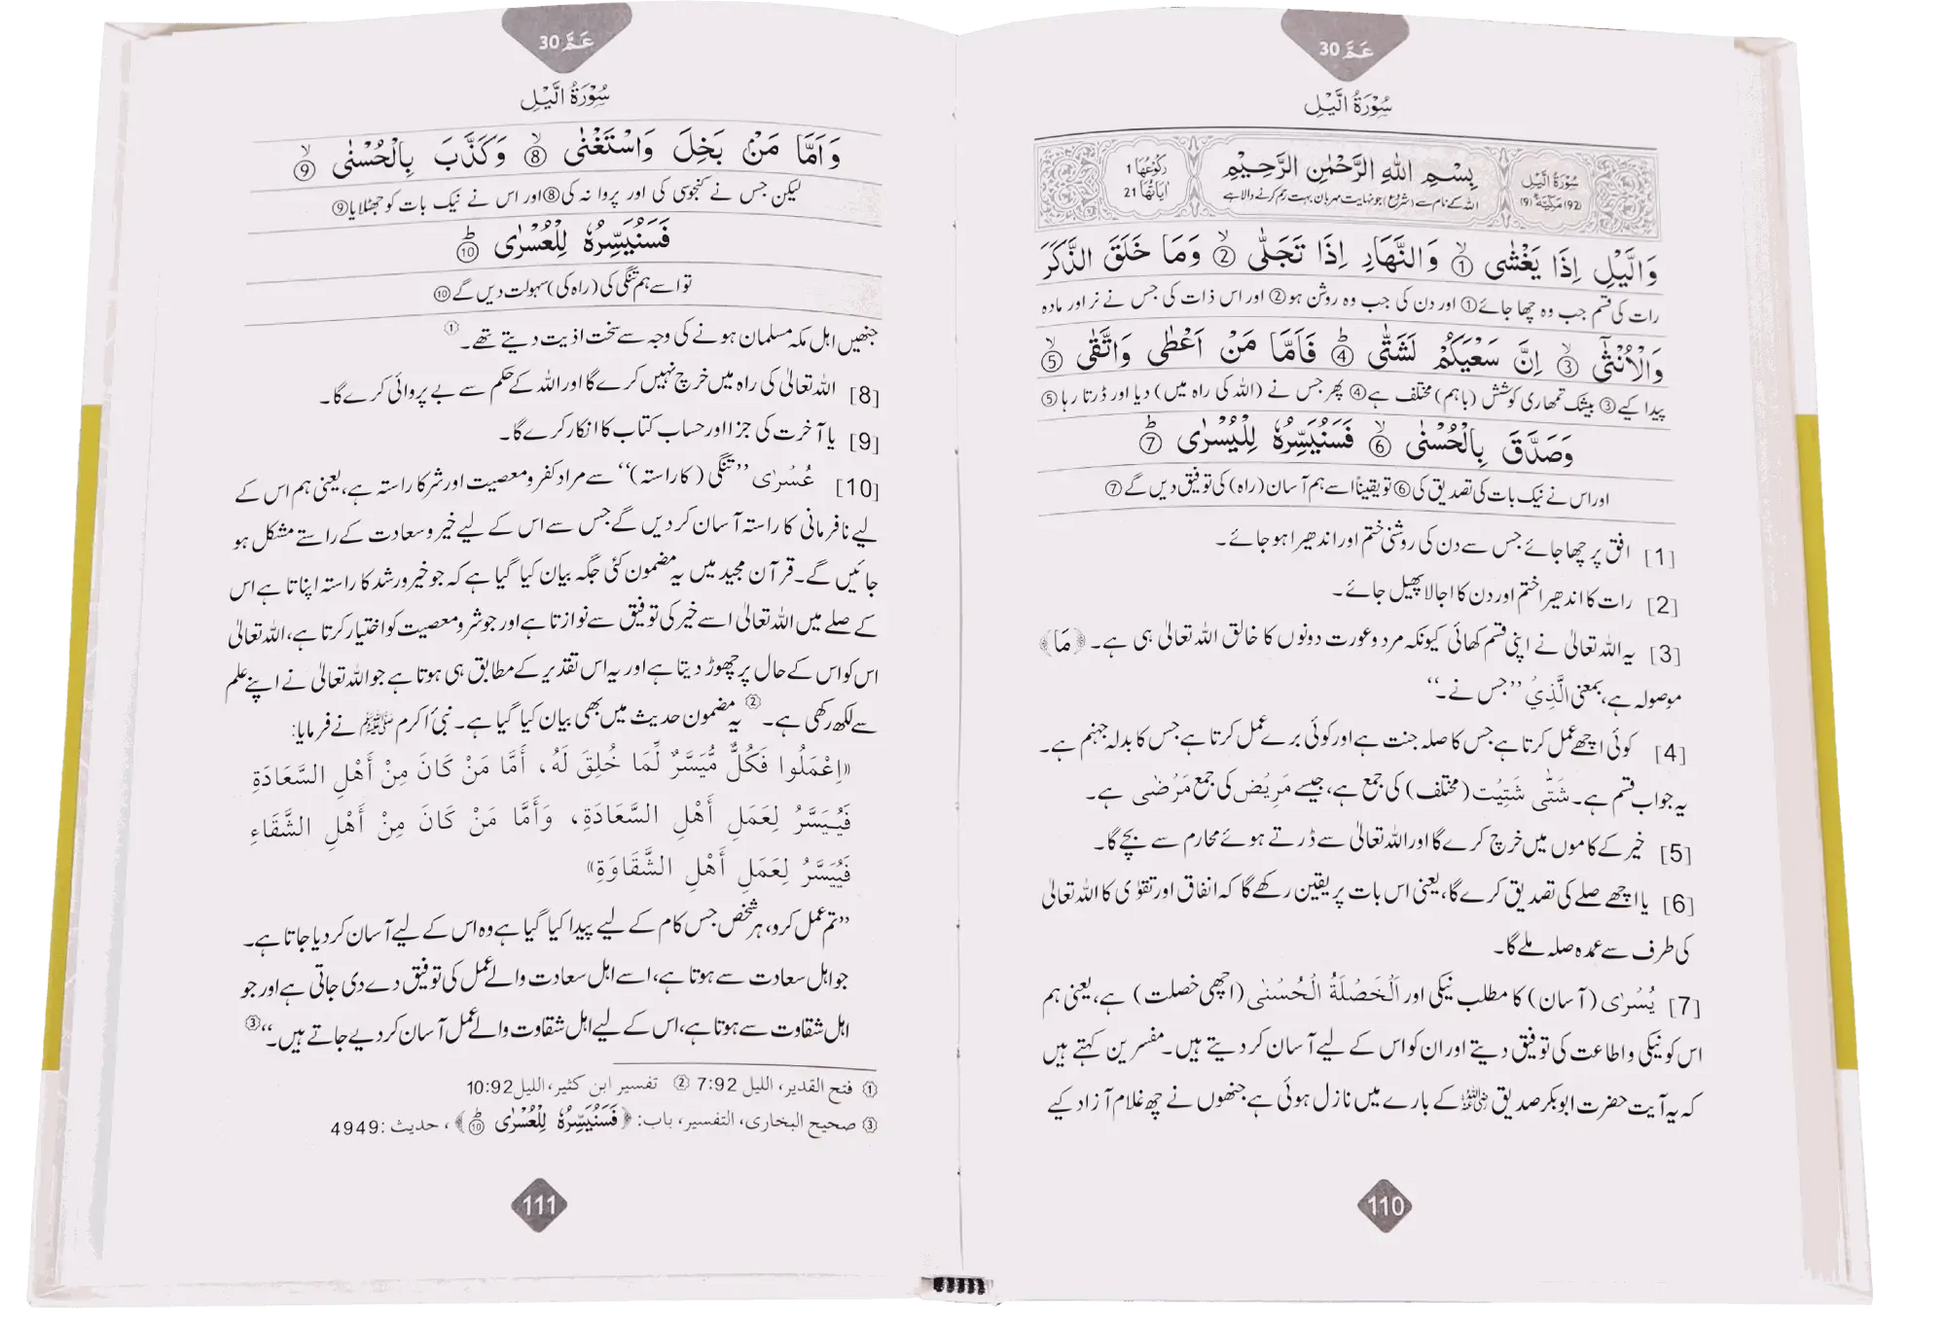 عَمَّ 30
سُوْرَةُ الَّيْلِ
سُوْرَةُ الَّيْلِ
(92) مَكِّيَّةٌ (9)
بِسْمِ اللهِ الرَّحْمٰنِ الرَّحِيْمِ
اللہ کے نام سے (شروع) جو نہایت مہربان، بہت رحم کرنے والا ہے
رُكُوْعُهَا 1
اٰيَاتُهَا 21
وَالَّيْلِ اِذَا يَغْشٰى ① وَالنَّهَارِ اِذَا تَجَلّٰى ② وَمَا خَلَقَ الذَّكَرَ
رات کی قسم جب وہ چھا جائے ① اور دن کی جب وہ روشن ہو ② اور اس ذات کی جس نے نر اور مادہ
وَالْاُنْثٰٓى ③ اِنَّ سَعْيَكُمْ لَشَتّٰى ④ فَاَمَّا مَنْ اَعْطٰى وَاتَّقٰى ⑤
پیدا کیے ③ بیشک تمھاری کوشش (باہم) مختلف ہے ④ پھر جس نے (اللہ کی راہ میں) دیا اور ڈرتا رہا ⑤
وَصَدَّقَ بِالْحُسْنٰى ⑥ فَسَنُيَسِّرُهٗ لِلْيُسْرٰى ⑦
اور اس نے نیک بات کی تصدیق کی ⑥ تو یقیناً اسے ہم آسان (راہ) کی توفیق دیں گے ⑦
[1] افق پر چھا جائے جس سے دن کی روشنی ختم اور اندھیرا ہو جائے۔
[2] رات کا اندھیرا ختم اور دن کا اجالا پھیل جائے۔
[3] یہ اللہ تعالیٰ نے اپنی قسم کھائی کیونکہ مرد و عورت دونوں کا خالق اللہ تعالیٰ ہی ہے۔ ﴿مَا﴾
موصولہ ہے، بمعنی الَّذِيْ ’’جس نے۔‘‘
[4] کوئی اچھے عمل کرتا ہے جس کا صلہ جنت ہے اور کوئی برے عمل کرتا ہے جس کا بدلہ جہنم ہے۔
یہ جواب قسم ہے۔ شَتّٰى شَتِيْت (مختلف) کی جمع ہے، جیسے مَرِيْض کی جمع مَرْضٰى ہے۔
[5] خیر کے کاموں میں خرچ کرے گا اور اللہ تعالیٰ سے ڈرتے ہوئے محارم سے بچے گا۔
[6] یا اچھے صلے کی تصدیق کرے گا، یعنی اس بات پر یقین رکھے گا کہ انفاق اور تقوٰی کا اللہ تعالیٰ
کی طرف سے عمدہ صلہ ملے گا۔
[7] يُسْرٰى (آسان) کا مطلب نیکی اور اَلْخَصْلَةُ الْحُسْنٰى (اچھی خصلت) ہے، یعنی ہم
اس کو نیکی و اطاعت کی توفیق دیتے اور ان کو اس کے لیے آسان کر دیتے ہیں۔ مفسرین کہتے ہیں
کہ یہ آیت حضرت ابوبکر صدیق رضی اللہ عنہ کے بارے میں نازل ہوئی ہے جنھوں نے چھ غلام آزاد کیے
110
عَمَّ 30
سُوْرَةُ الَّيْلِ
وَاَمَّا مَنْۢ بَخِلَ وَاسْتَغْنٰى ⑧ وَكَذَّبَ بِالْحُسْنٰى ⑨
لیکن جس نے کنجوسی کی اور پروا نہ کی ⑧ اور اس نے نیک بات کو جھٹلایا ⑨
فَسَنُيَسِّرُهٗ لِلْعُسْرٰى ⑩
تو اسے ہم تنگی کی (راہ کی) سہولت دیں گے ⑩
جنھیں اہل مکہ مسلمان ہونے کی وجہ سے سخت اذیت دیتے تھے۔ ①
[8] اللہ تعالیٰ کی راہ میں خرچ نہیں کرے گا اور اللہ کے حکم سے بے پروائی کرے گا۔
[9] یا آخرت کی جزا اور حساب کتاب کا انکار کرے گا۔
[10] عُسْرٰى ’’تنگی (کا راستہ)‘‘ سے مراد کفر و معصیت اور شر کا راستہ ہے، یعنی ہم اس کے
لیے نافرمانی کا راستہ آسان کر دیں گے جس سے اس کے لیے خیر و سعادت کے راستے مشکل ہو
جائیں گے۔ قرآن مجید میں یہ مضمون کئی جگہ بیان کیا گیا ہے کہ جو خیر و رشد کا راستہ اپناتا ہے اس
کے صلے میں اللہ تعالیٰ اسے خیر کی توفیق سے نوازتا ہے اور جو شر و معصیت کو اختیار کرتا ہے، اللہ تعالیٰ
اس کو اس کے حال پر چھوڑ دیتا ہے اور یہ اس تقدیر کے مطابق ہی ہوتا ہے جو اللہ تعالیٰ نے اپنے علم
سے لکھ رکھی ہے۔ ② یہ مضمون حدیث میں بھی بیان کیا گیا ہے۔ نبیٔ اکرم ﷺ نے فرمایا:
«اِعْمَلُوا فَكُلٌّ مُّيَسَّرٌ لِّمَا خُلِقَ لَهُ، أَمَّا مَنْ كَانَ مِنْ أَهْلِ السَّعَادَةِ
فَيُيَسَّرُ لِعَمَلِ أَهْلِ السَّعَادَةِ، وَأَمَّا مَنْ كَانَ مِنْ أَهْلِ الشَّقَاءِ
فَيُيَسَّرُ لِعَمَلِ أَهْلِ الشَّقَاوَةِ»
’’تم عمل کرو، ہر شخص جس کام کے لیے پیدا کیا گیا ہے وہ اس کے لیے آسان کر دیا جاتا ہے۔
جو اہل سعادت سے ہوتا ہے، اسے اہل سعادت والے عمل کی توفیق دے دی جاتی ہے اور جو
اہل شقاوت سے ہوتا ہے، اس کے لیے اہل شقاوت والے عمل آسان کر دیے جاتے ہیں۔‘‘ ③
① فتح القدیر، اللیل 7:92 ② تفسیر ابن کثیر، اللیل 10:92
③ صحیح البخاری، التفسیر، باب: ﴿فَسَنُيَسِّرُهٗ لِلْعُسْرٰى ⑩﴾، حدیث: 4949
111